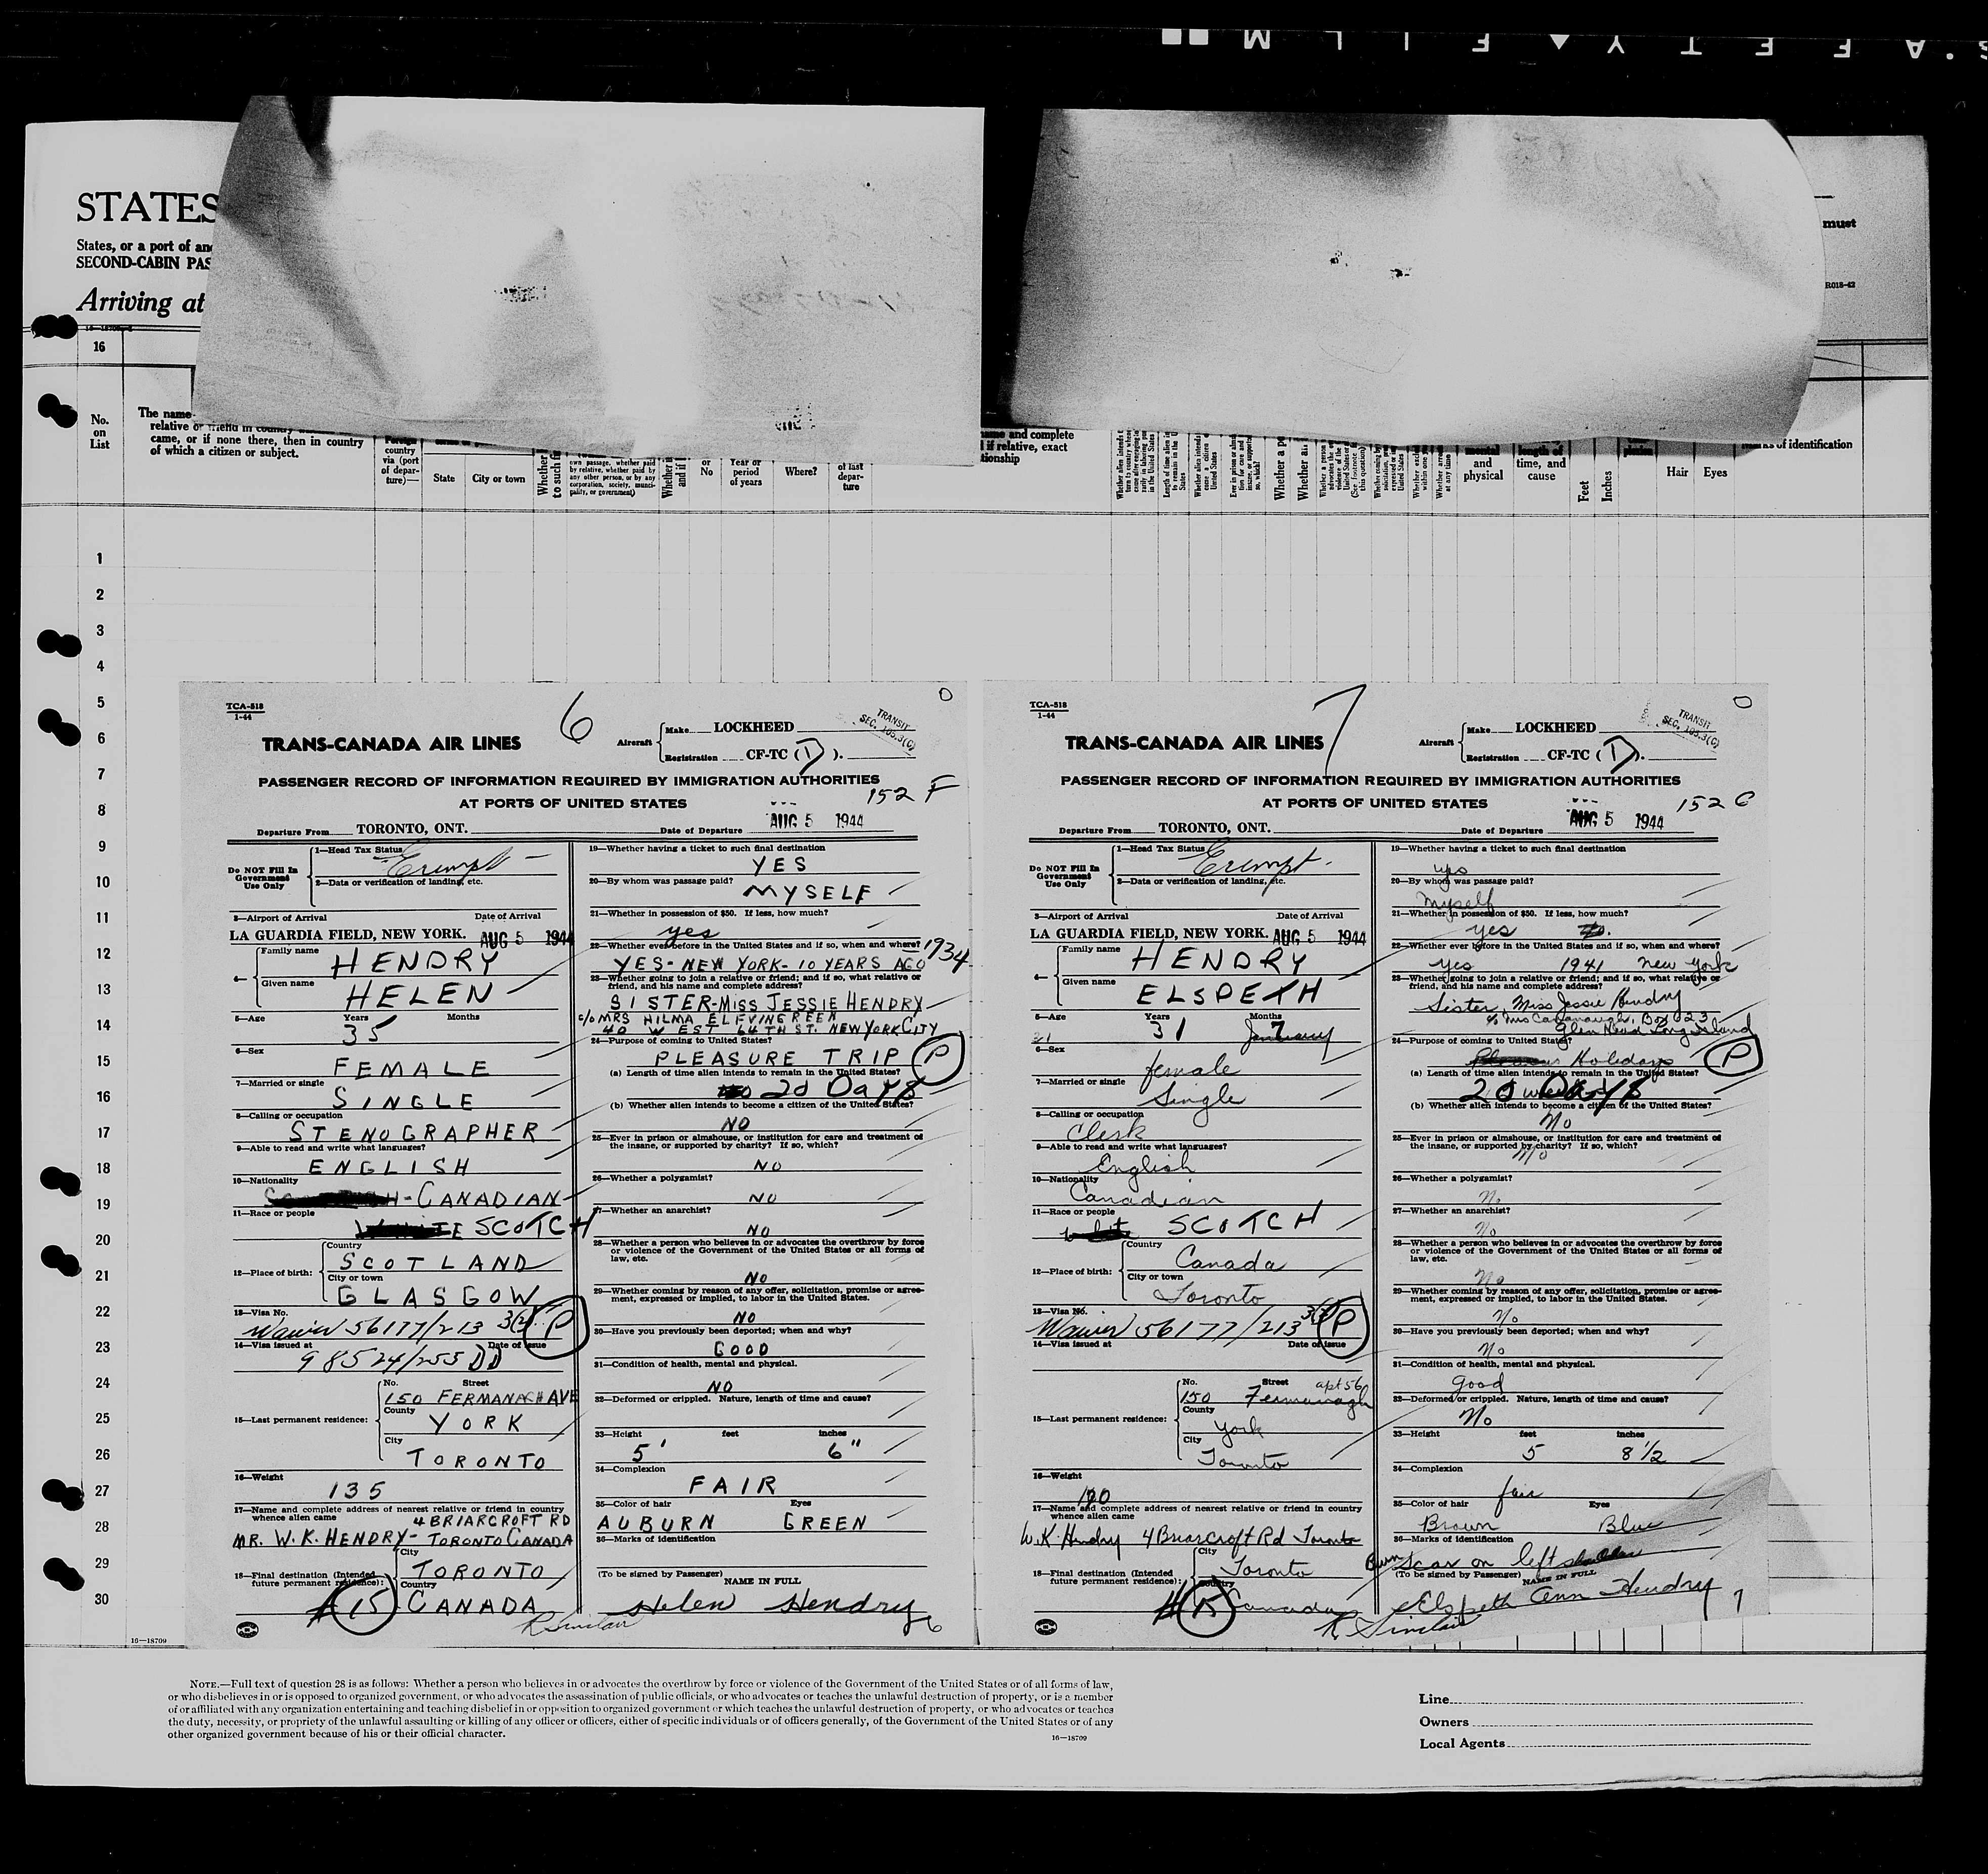 SAFETY FILM
STATES
States, or a port of an
SECOND-CABIN PAS
Arriving at
must
R018-42
16
No.
on
List
The name
relative or friend in country
came, or if none there, then in country
of which a citizen or subject.
Foreign
country
via (port
of depar-
ture)—
State
City or town
Whether
to such fi
own passage, whether paid
by relative, whether paid by
any other person, or by any
corporation, society, munici-
pality, or government)
or
No
Year or
period
of years
Where?
of last
depar-
ture
name and complete
if relative, exact
tionship
mental
and
physical
length of
time, and
cause
Feet
Inches
Hair
Eyes
Marks of identification
1
2
3
4
5
6
7
8
9
10
11
12
13
14
15
16
17
18
19
20
21
22
23
24
25
26
27
28
29
30
16—18709
TCA-518
1-44
6
TRANS-CANADA AIR LINES
Aircraft
Make LOCKHEED
Registration CF-TC (D).
TRANSIT
SEC. 105.3(C)
PASSENGER RECORD OF INFORMATION REQUIRED BY IMMIGRATION AUTHORITIES
AT PORTS OF UNITED STATES
152 F
Departure From TORONTO, ONT.
Date of Departure AUG 5 1944
Do NOT Fill In
Government
Use Only
1—Head Tax Status
Exempt
2—Data or verification of landing, etc.
3—Airport of Arrival Date of Arrival
LA GUARDIA FIELD, NEW YORK. AUG 5 1944
4— Family name
HENDRY
Given name
HELEN
5—Age Years Months
35
6—Sex
FEMALE
7—Married or single
SINGLE
8—Calling or occupation
STENOGRAPHER
9—Able to read and write what languages?
ENGLISH
10—Nationality
-CANADIAN
11—Race or people
SCOTCH
12—Place of birth:
Country
SCOTLAND
City or town
GLASGOW
13—Visa No.
Waiver 56177/213 3(2) P
14—Visa issued at Date of issue
98524/255 DD
15—Last permanent residence:
No. Street
150 FERMANAGH AVE
County
YORK
City
TORONTO
16—Weight
135
17—Name and complete address of nearest relative or friend in country
whence alien came
4 BRIARCROFT RD
MR. W. K. HENDRY- TORONTO CANADA
18—Final destination (Intended
future permanent residence):
City
TORONTO
Country
CANADA
#15
R Sinclair
19—Whether having a ticket to such final destination
YES
20—By whom was passage paid?
MYSELF
21—Whether in possession of $50. If less, how much?
yes
22—Whether ever before in the United States and if so, when and where?
1934
YES - NEW YORK - 10 YEARS AGO
23—Whether going to join a relative or friend; and if so, what relative or
friend, and his name and complete address?
SISTER-MISS JESSIE HENDRY
c/o MRS HILMA ELEVINGREEN
40 WEST 64TH ST. NEW YORK CITY
24—Purpose of coming to United States?
PLEASURE TRIP P
(a) Length of time alien intends to remain in the United States?
20 DAYS
(b) Whether alien intends to become a citizen of the United States?
NO
25—Ever in prison or almshouse, or institution for care and treatment of
the insane, or supported by charity? If so, which?
NO
26—Whether a polygamist?
NO
27—Whether an anarchist?
NO
28—Whether a person who believes in or advocates the overthrow by force
or violence of the Government of the United States or all forms of
law, etc.
NO
29—Whether coming by reason of any offer, solicitation, promise or agree-
ment, expressed or implied, to labor in the United States.
NO
30—Have you previously been deported; when and why?
GOOD
31—Condition of health, mental and physical.
NO
32—Deformed or crippled. Nature, length of time and cause?
33—Height feet inches
5' 6"
34—Complexion
FAIR
35—Color of hair Eyes
AUBURN GREEN
36—Marks of identification
(To be signed by Passenger)
NAME IN FULL
Helen Hendry
6
TCA-518
1-44
7
TRANS-CANADA AIR LINES
Aircraft
Make LOCKHEED
Registration CF-TC (D).
TRANSIT
SEC. 105.3(C)
PASSENGER RECORD OF INFORMATION REQUIRED BY IMMIGRATION AUTHORITIES
AT PORTS OF UNITED STATES
152 C
Departure From TORONTO, ONT.
Date of Departure AUG 5 1944
Do NOT Fill In
Government
Use Only
1—Head Tax Status
Exempt.
2—Data or verification of landing, etc.
3—Airport of Arrival Date of Arrival
LA GUARDIA FIELD, NEW YORK. AUG 5 1944
4— Family name
HENDRY
Given name
ELSPETH
5—Age Years Months
31 7
6—Sex
female
7—Married or single
Single
8—Calling or occupation
Clerk
9—Able to read and write what languages?
English
10—Nationality
Canadian
11—Race or people
white SCOTCH
12—Place of birth:
Country
Canada
City or town
Toronto
13—Visa No.
Waiver 56177/213 3(2) P
14—Visa issued at Date of issue
15—Last permanent residence:
No. Street apt 56
150 Fermanagh
County
York
City
Toronto
16—Weight
17—Name and complete address of nearest relative or friend in country
whence alien came
W.K. Hendry 4 Briarcroft Rd Toronto
18—Final destination (Intended
future permanent residence):
City
Toronto
Country
Canada
#15
R Sinclair
19—Whether having a ticket to such final destination
yes
20—By whom was passage paid?
Myself
21—Whether in possession of $50. If less, how much?
yes
22—Whether ever before in the United States and if so, when and where?
yes 1941 New York
23—Whether going to join a relative or friend; and if so, what relative or
friend, and his name and complete address?
Sister, Miss Jessie Hendry
c/o Mrs Cavanaugh, Box 123
Glen Head Long Island
24—Purpose of coming to United States?
Holidays P
(a) Length of time alien intends to remain in the United States?
20 DAYS
(b) Whether alien intends to become a citizen of the United States?
No
25—Ever in prison or almshouse, or institution for care and treatment of
the insane, or supported by charity? If so, which?
No
26—Whether a polygamist?
No
27—Whether an anarchist?
No
28—Whether a person who believes in or advocates the overthrow by force
or violence of the Government of the United States or all forms of
law, etc.
No
29—Whether coming by reason of any offer, solicitation, promise or agree-
ment, expressed or implied, to labor in the United States.
No
30—Have you previously been deported; when and why?
No
31—Condition of health, mental and physical.
Good
32—Deformed or crippled. Nature, length of time and cause?
No
33—Height feet inches
5 8 1/2
34—Complexion
fair
35—Color of hair Eyes
Brown Blue
36—Marks of identification
Burn Scar on left shoulder
(To be signed by Passenger) NAME IN FULL
Elspeth Ann Hendry
7
NOTE.—Full text of question 28 is as follows: Whether a person who believes in or advocates the overthrow by force or violence of the Government of the United States or of all forms of law,
or who disbelieves in or is opposed to organized government, or who advocates the assassination of public officials, or who advocates or teaches the unlawful destruction of property, or is a member
of or affiliated with any organization entertaining and teaching disbelief in or opposition to organized government or which teaches the unlawful destruction of property, or who advocates or teaches
the duty, necessity, or propriety of the unlawful assaulting or killing of any officer or officers, either of specific individuals or of officers generally, of the Government of the United States or of any
other organized government because of his or their official character.
16—18709
Line
Owners
Local Agents